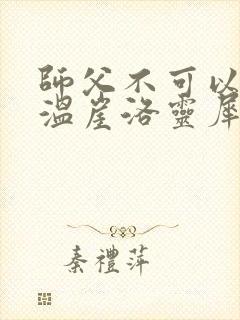 師父不可以
溫崖洛靈犀
秦禮萍